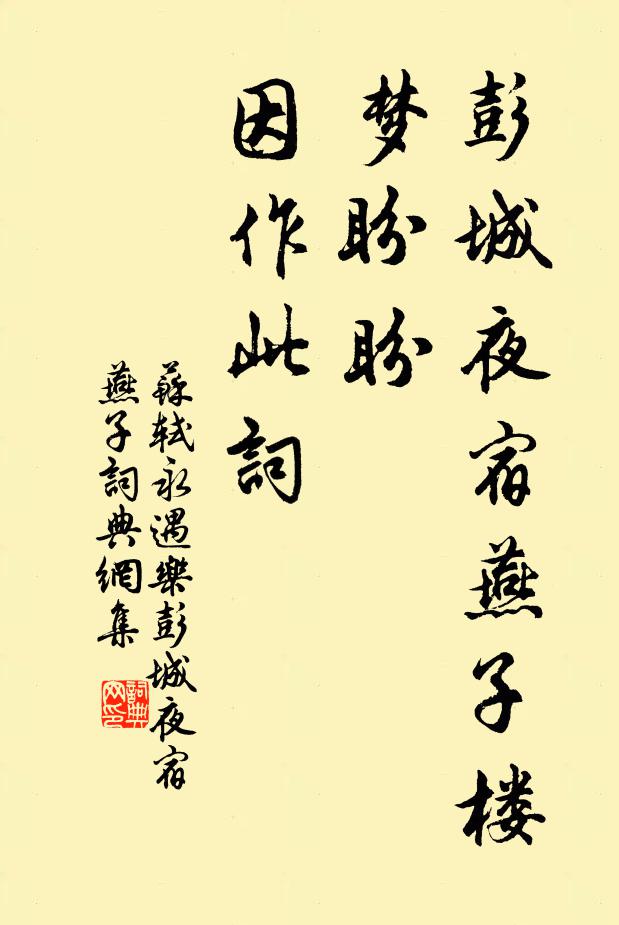 彭城夜宿燕子楼
梦盼盼
因作此詞
蘇軾永遇樂彭城夜宿
燕子詞典網集
詞典
网印